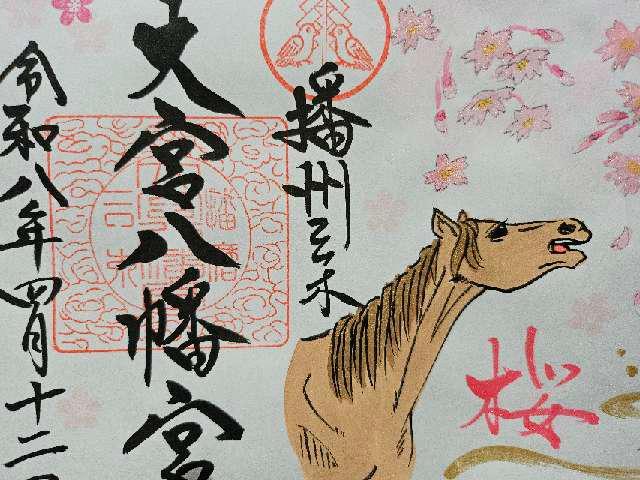 播州三木
大宮八幡宮
令和八年四月十二
桜